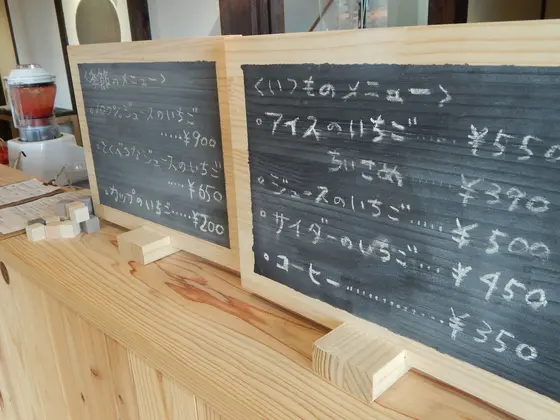 のメニュー>
ジュースのいちご
・・・・・¥900
・とくべつなジュースのいちご
・・・・¥650
・カップのいちご・・・・・¥200
<いつものメニュー>
・アイスのいちご・・・・・¥550
ちいさめ・・・・・¥390
・ジュースのいちご・・・・¥500
・サイダーのいちご・・・・¥450
・コーヒー・・・・・・・・・・¥350